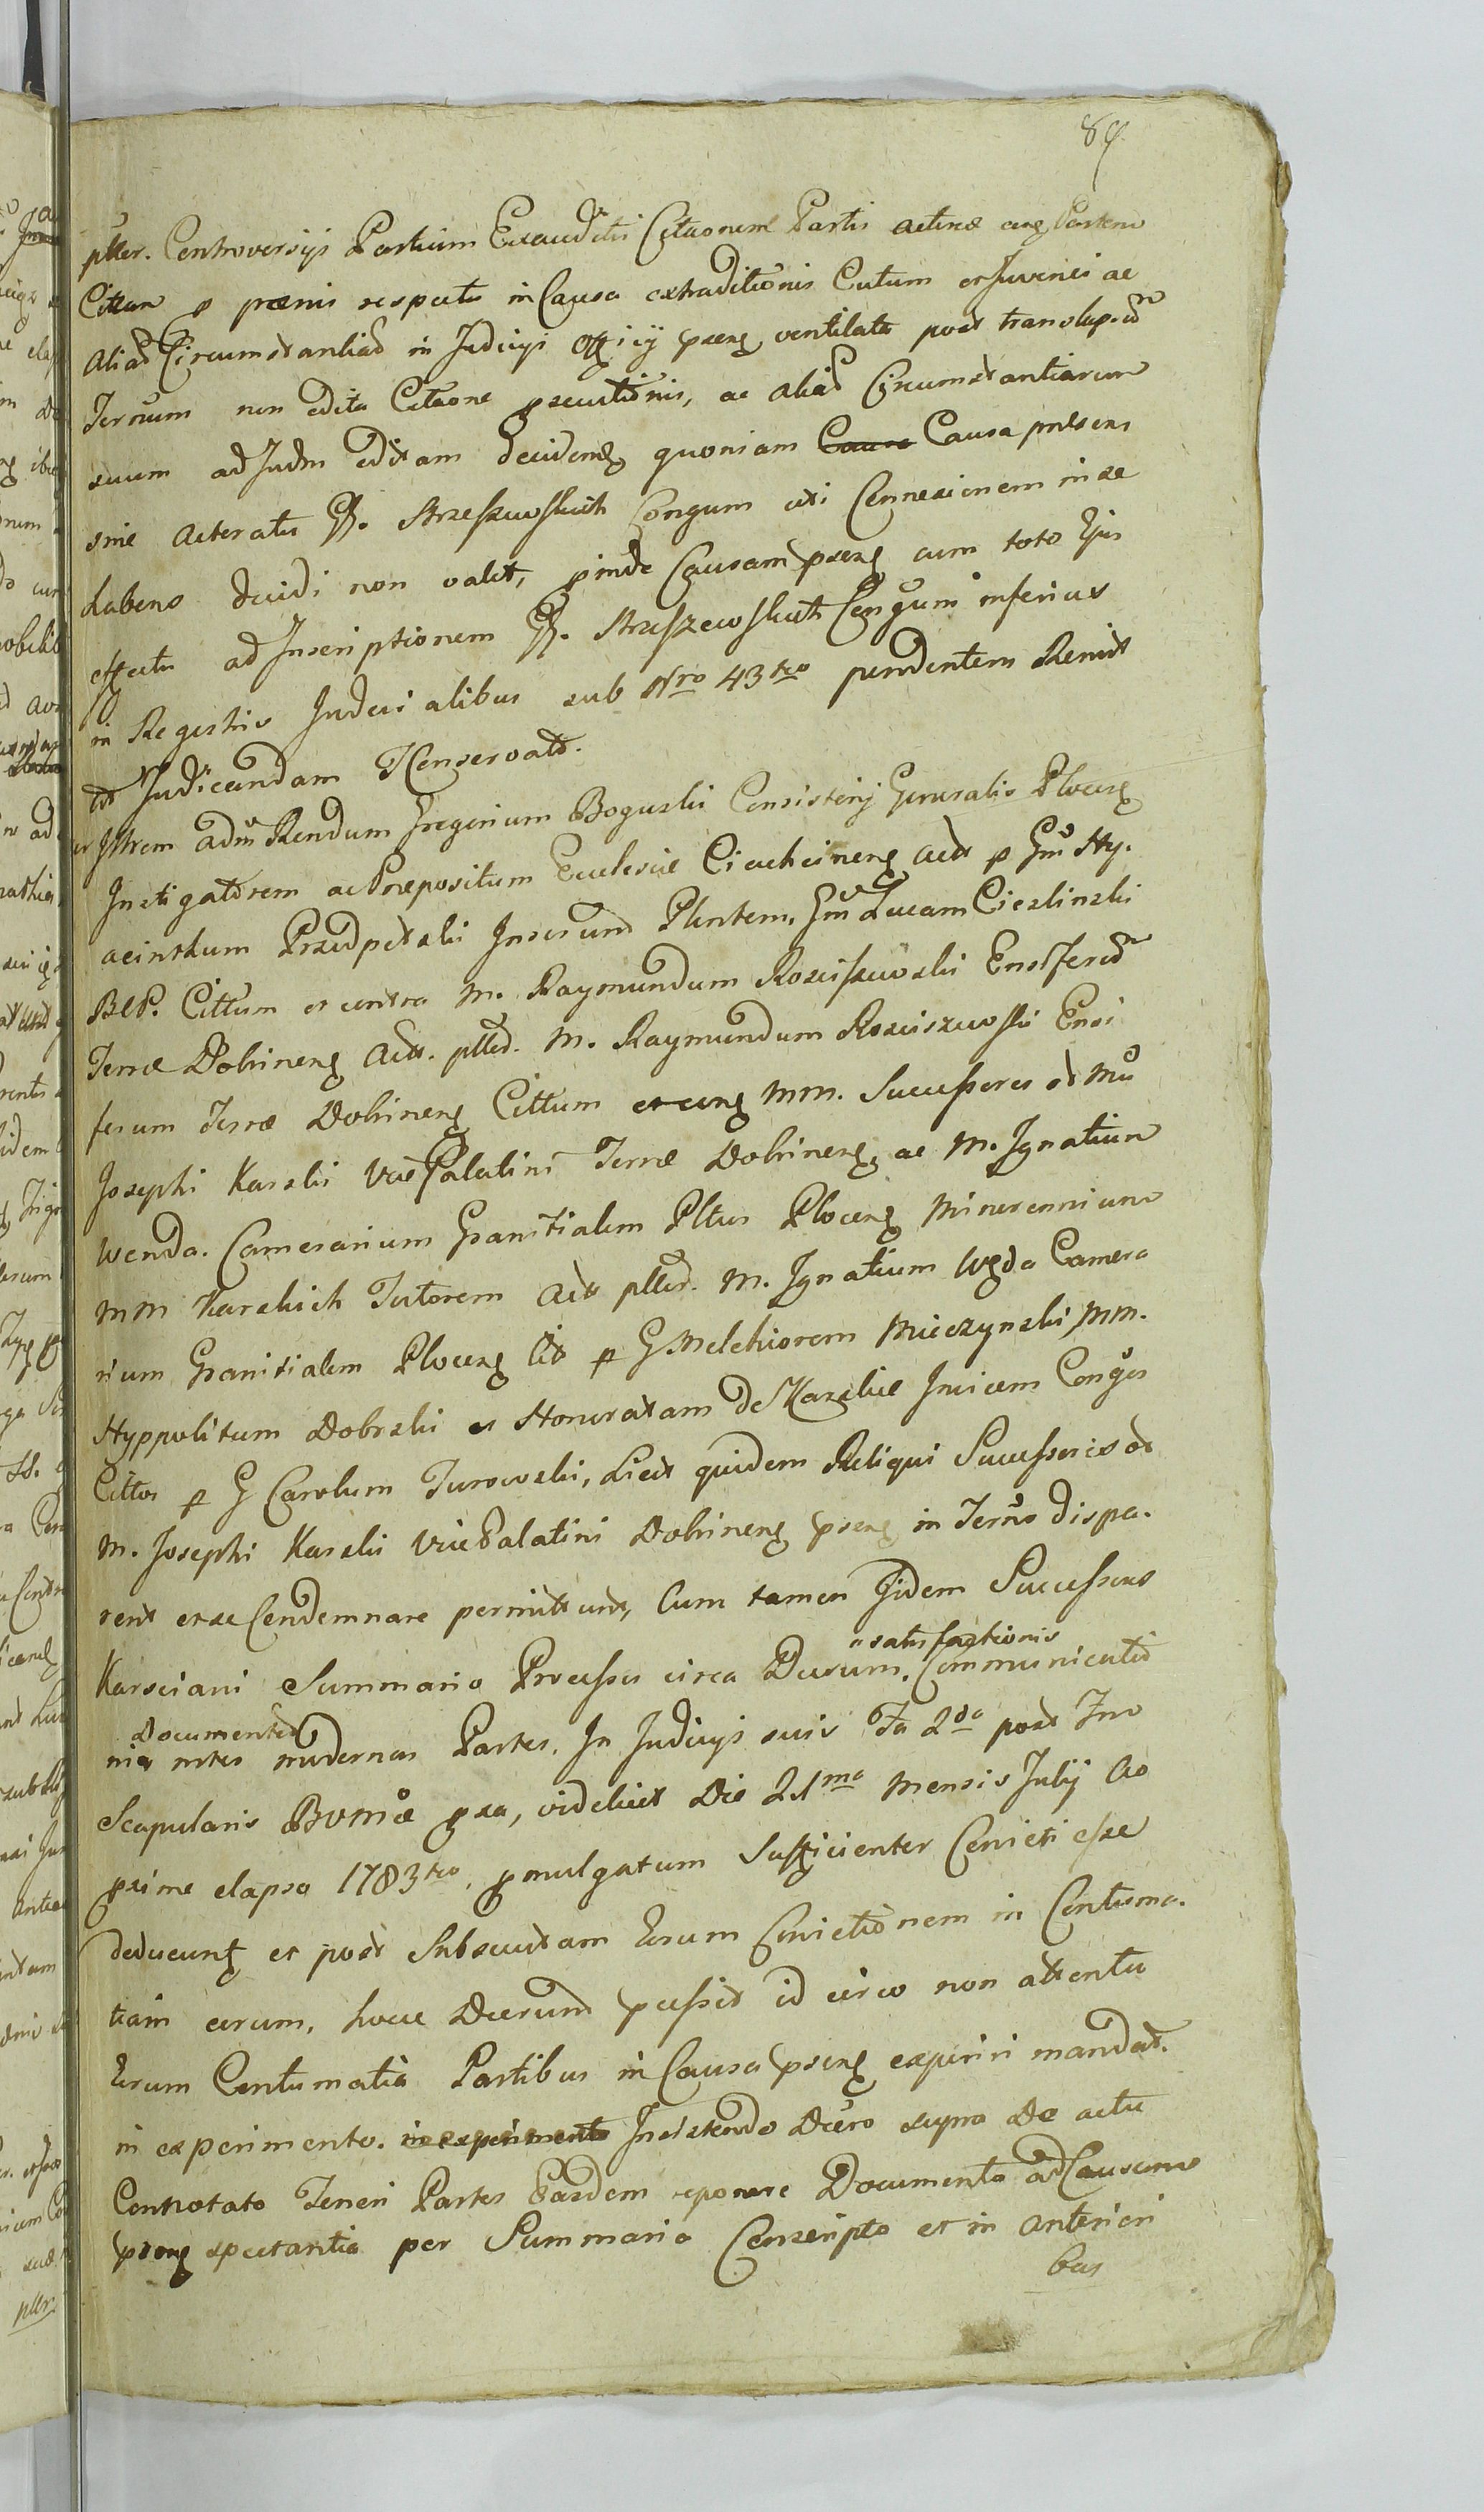 89.
pller. Controversijs Partium Exauditis Citaonem Partis actreae
Cittan p poenis respectu in Causa extraditionis Cutum et Juvenci ac
aliad Circumstantiad in Judicijs Officij pseng ventilata post translaps.
Ternum non edita Citaone psecutionis, ac aliad Circumstantiarum
suum ad Judm editam decidend quoniam Causa Causa pnlsens
sine acteratu GG. Strzeszewskich Congum uti Connexionem in se
habens decidi non valet, pinde Causam pseng cum toto Ejus
effectu ad Inscriptionem GG. Strzeszewskich Congum inferius
in Regestris Judicialibus sub Nro 43tio pendentem Remit
tit Judicandam Kenservatd.
er Illrem adm Rendum Gregorium Boguski Consistorij Generalis Plocens
Instigatorem ac Praepositum Ecclesiae Ciachcinens actt p Gm Hy.
acinthum Przedpelski Inserund Plentem, Gm Lucam Cieslinski
BCP. Cittum et contra M. Raymundum Rosciszewski Ensifer
Terrae Dobrinens actt. plled. M. Raymundum Rosciszewski Ensi
ferum Terrae Dobrinens Cittum et cum MM. Successores ol Mci
Josephi Karski Vice Palatini Terrae Dobrinens, ac M. Ignatium
Wenda. Camerarium Granitialem Pltus Plocens Minorennium
MM Karskich Tutorem actt plled. M. Ignatium Węda Camera
rium Granitialem Plocens Cit p G Melchiorem Mieczynski, MM.
Hyppolitum Dobrski et Honoratam de Karskie Invicem Conges
Cittos p G Carolum Turowski, Licet quidem Reliqui Successores ol
M. Josephi Karski Vice Palatini Dobrinens pseng in Terno dispa.
rent et se Condemnare permittunt, Cum tamen Iidem Successores
Karsciani Summario Processu circa Decrum, Communicatio
" satisfactionis
Documentor
nis intes modernas Partes. In Judicijs suis Fa 2da post Fm
Scapularis BVMae pxa, videlicet Die 21ma Mensis Julij Ao
pxime elapso 1783tio, pmulgatum Sufficienter Convicti esse
deducunt et post Subsecutam Eorum Convictionem in Contuma.
tiam eorum, hocce Decrum pcessit id circo non attentu
Eorum Contumatia Partibus in Causa pseng experiri mandat.
in experimento. in experimento Insistendo Decro supra De actu
Connotato Teneri Partes Easdem reponere Documenta ad Causam
pseng spectantia per Summario Conscripto et in anteriori
bus